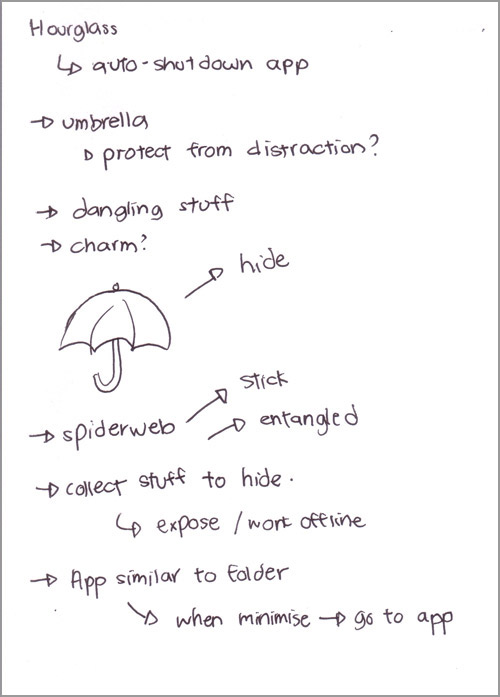 Hourglass
↳ auto-shutdown app
→ umbrella
▷ protect from distraction?
→ dangling stuff
→ charm?
→ hide
→ stick
→ spiderweb → entangled
→ collect stuff to hide.
↳ expose / work offline
→ App similar to folder
↘ when minimise → go to app